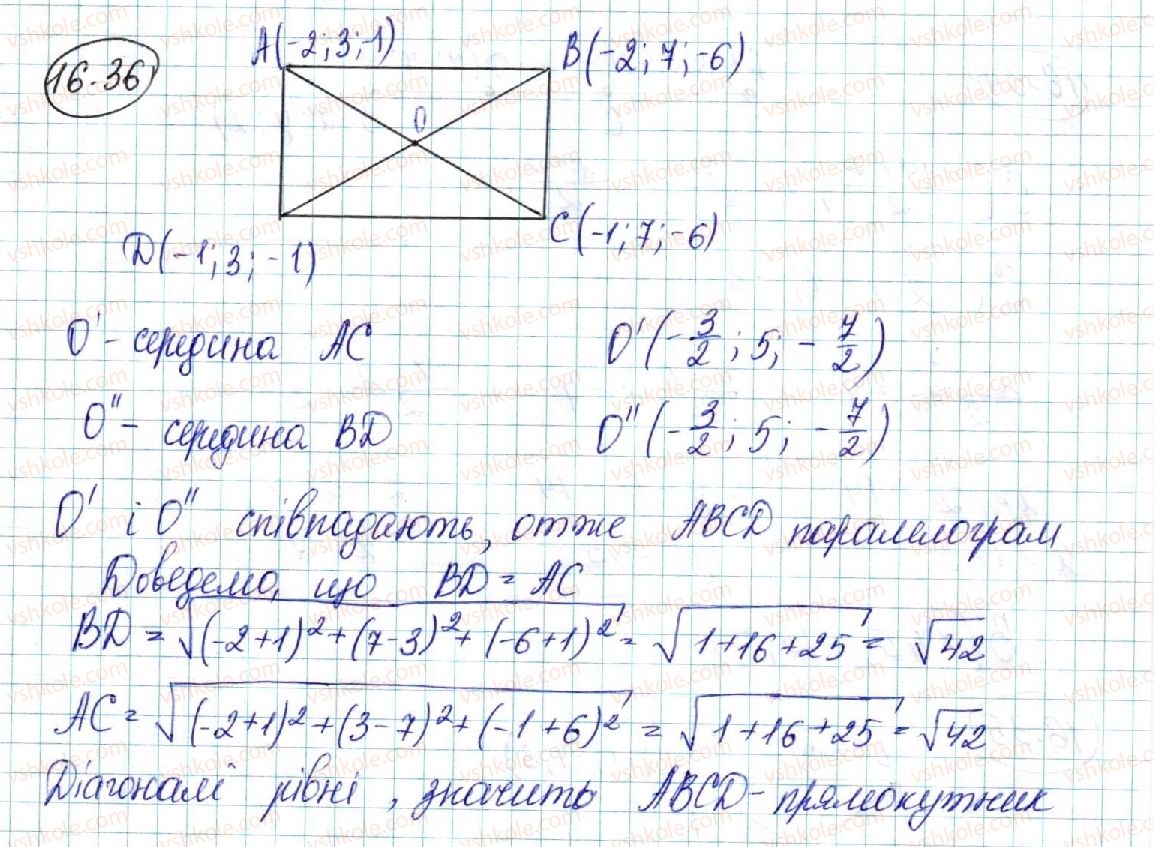 16.36
A(-2; 3; -1)
B(-2; 7; -6)
O
C(-1; 7; -6)
D(-1; 3; -1)
O' - середина AC O'(-3/2; 5; -7/2)
O'' - середина BD O''(-3/2; 5; -7/2)
O' і O'' співпадають, отже ABCD паралелограм
Доведемо, що BD = AC
BD = √((-2+1)²+(7-3)²+(-6+1)²) = √(1+16+25) = √42
AC = √((-2+1)²+(3-7)²+(-1+6)²) = √(1+16+25) = √42
Діагоналі рівні, значить ABCD - прямокутник
vshkole.com